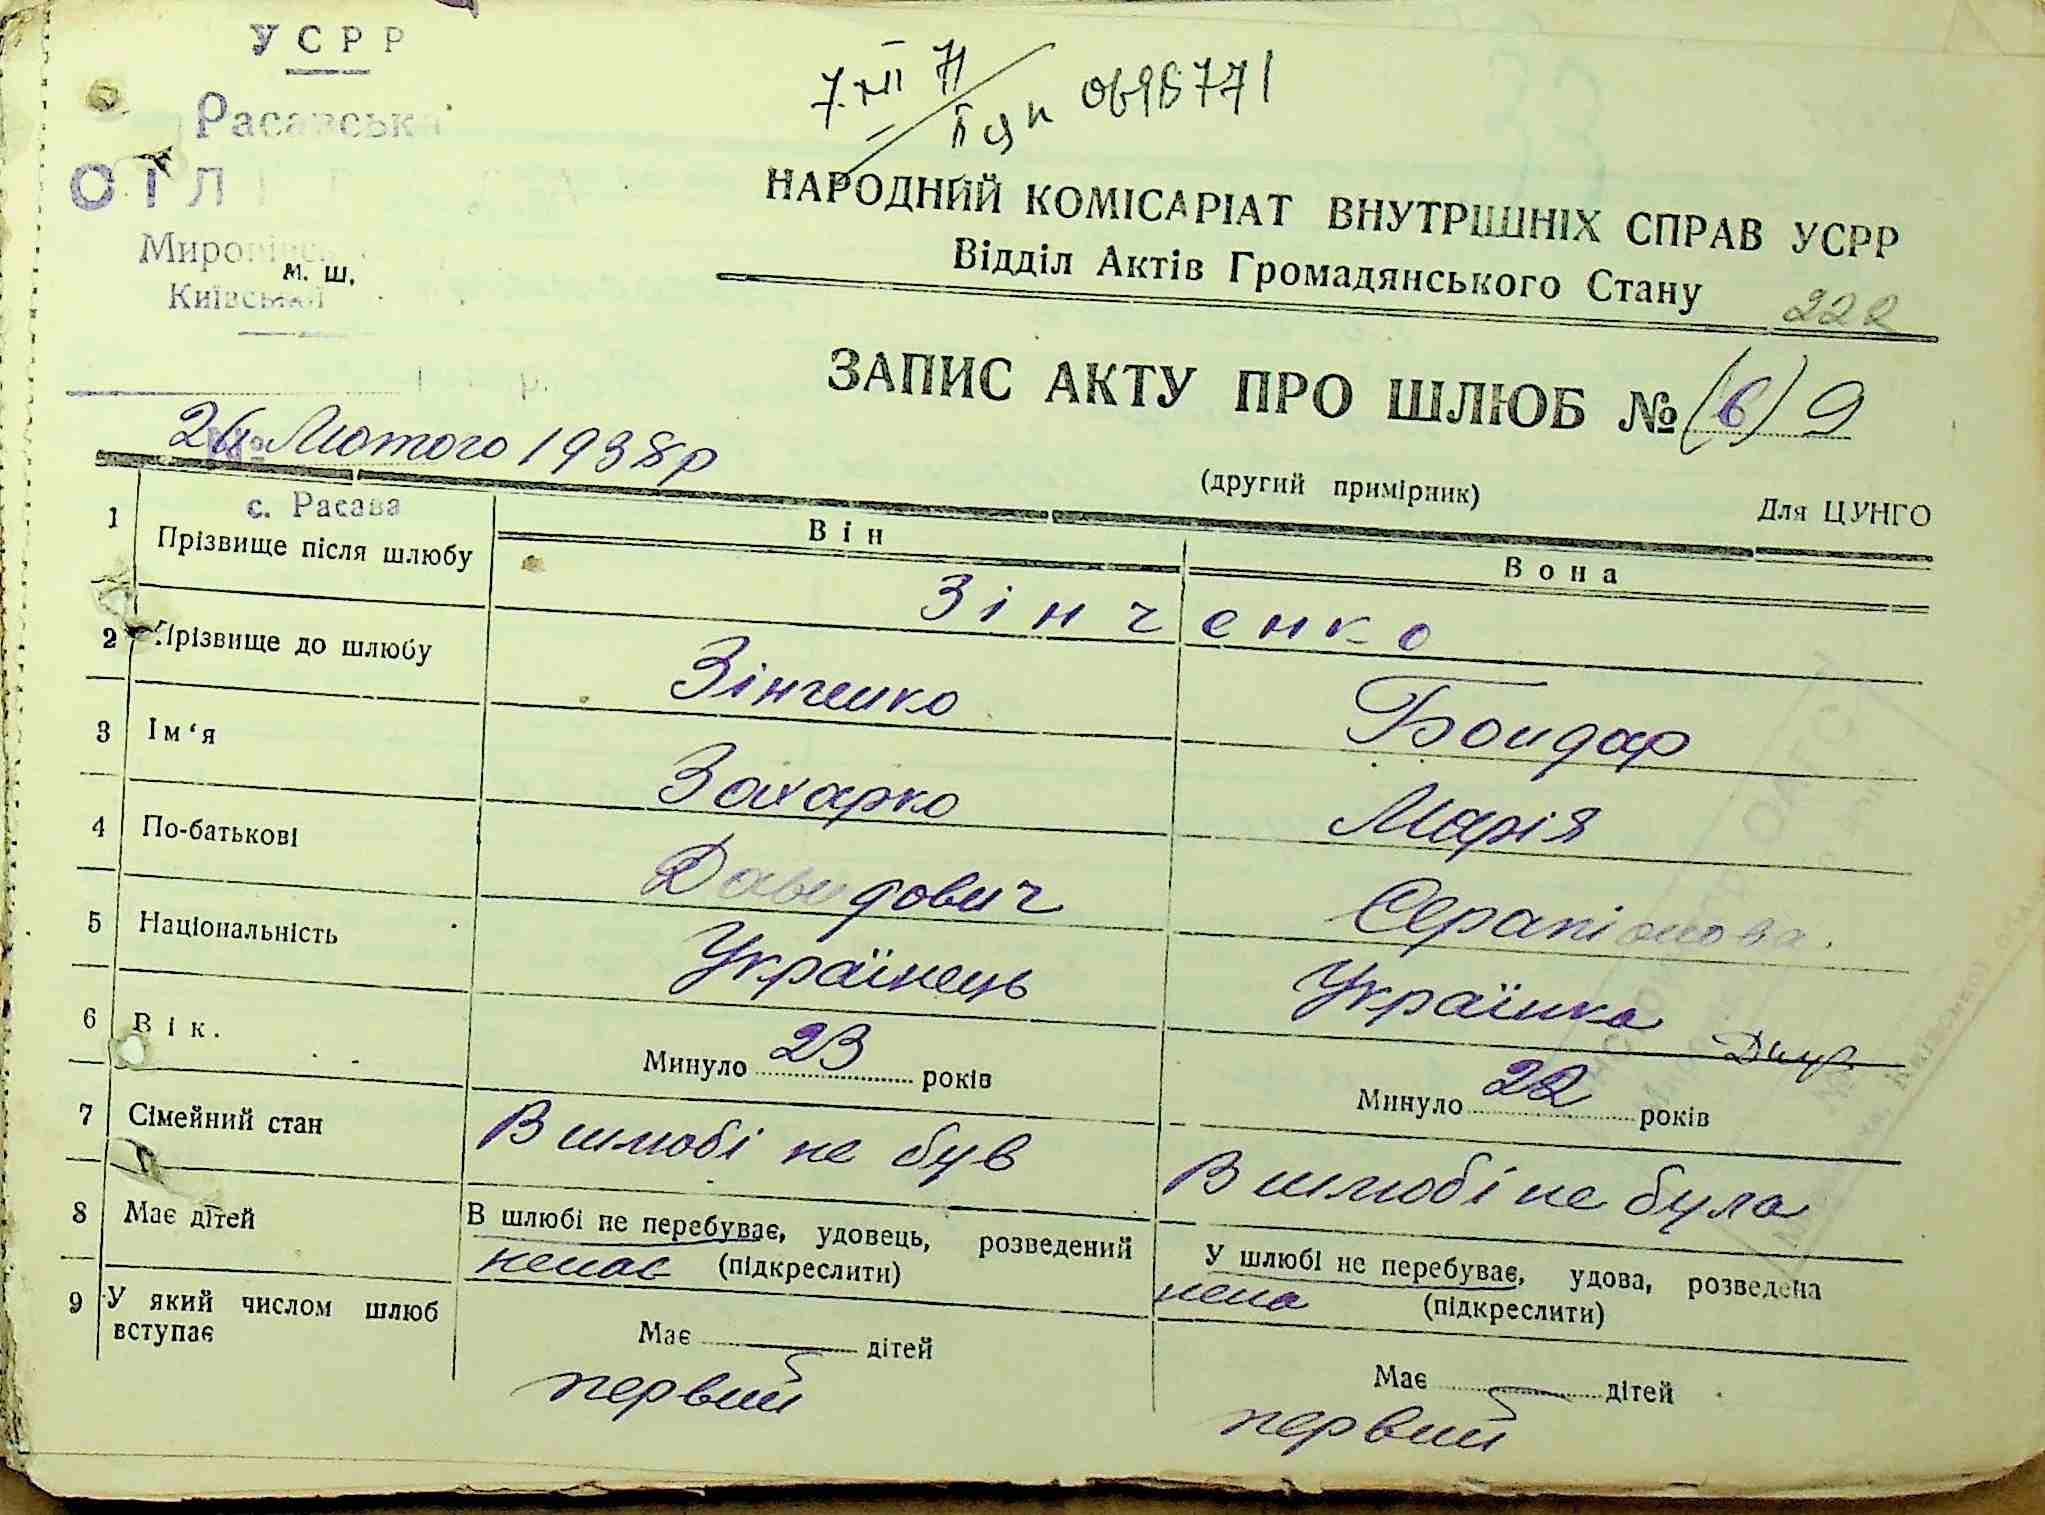 УСРР
Расавська
7 XII 71
II ця н 0698771
НАРОДНИЙ КОМІСАРІАТ ВНУТРІШНІХ СПРАВ УСРР
Відділ Актів Громадянського Стану
М. Ш.
Київської
222
ЗАПИС АКТУ ПРО ШЛЮБ № (6) 9
Лютого 1938р
(другий примірник) Для ЦУНГО
с. Расава
Він Вона
1 Прізвище після шлюбу Зінченко
2 Прізвище до шлюбу Зінченко Бондар
3 Ім‘я Захарко Марія
4 По-батькові Давидович Серапіонова
5 Національність Українець Українка
6 Вік. Минуло 23 років Минуло 22 років
7 Сімейний стан В шлюбі не був В шлюбі не була
В шлюбі не перебуває, удовець, розведений У шлюбі не перебуває, удова, розведена
(підкреслити) (підкреслити)
8 Має дітей немає нема
Має дітей Має дітей
9 У який числом шлюб вступає первий первий